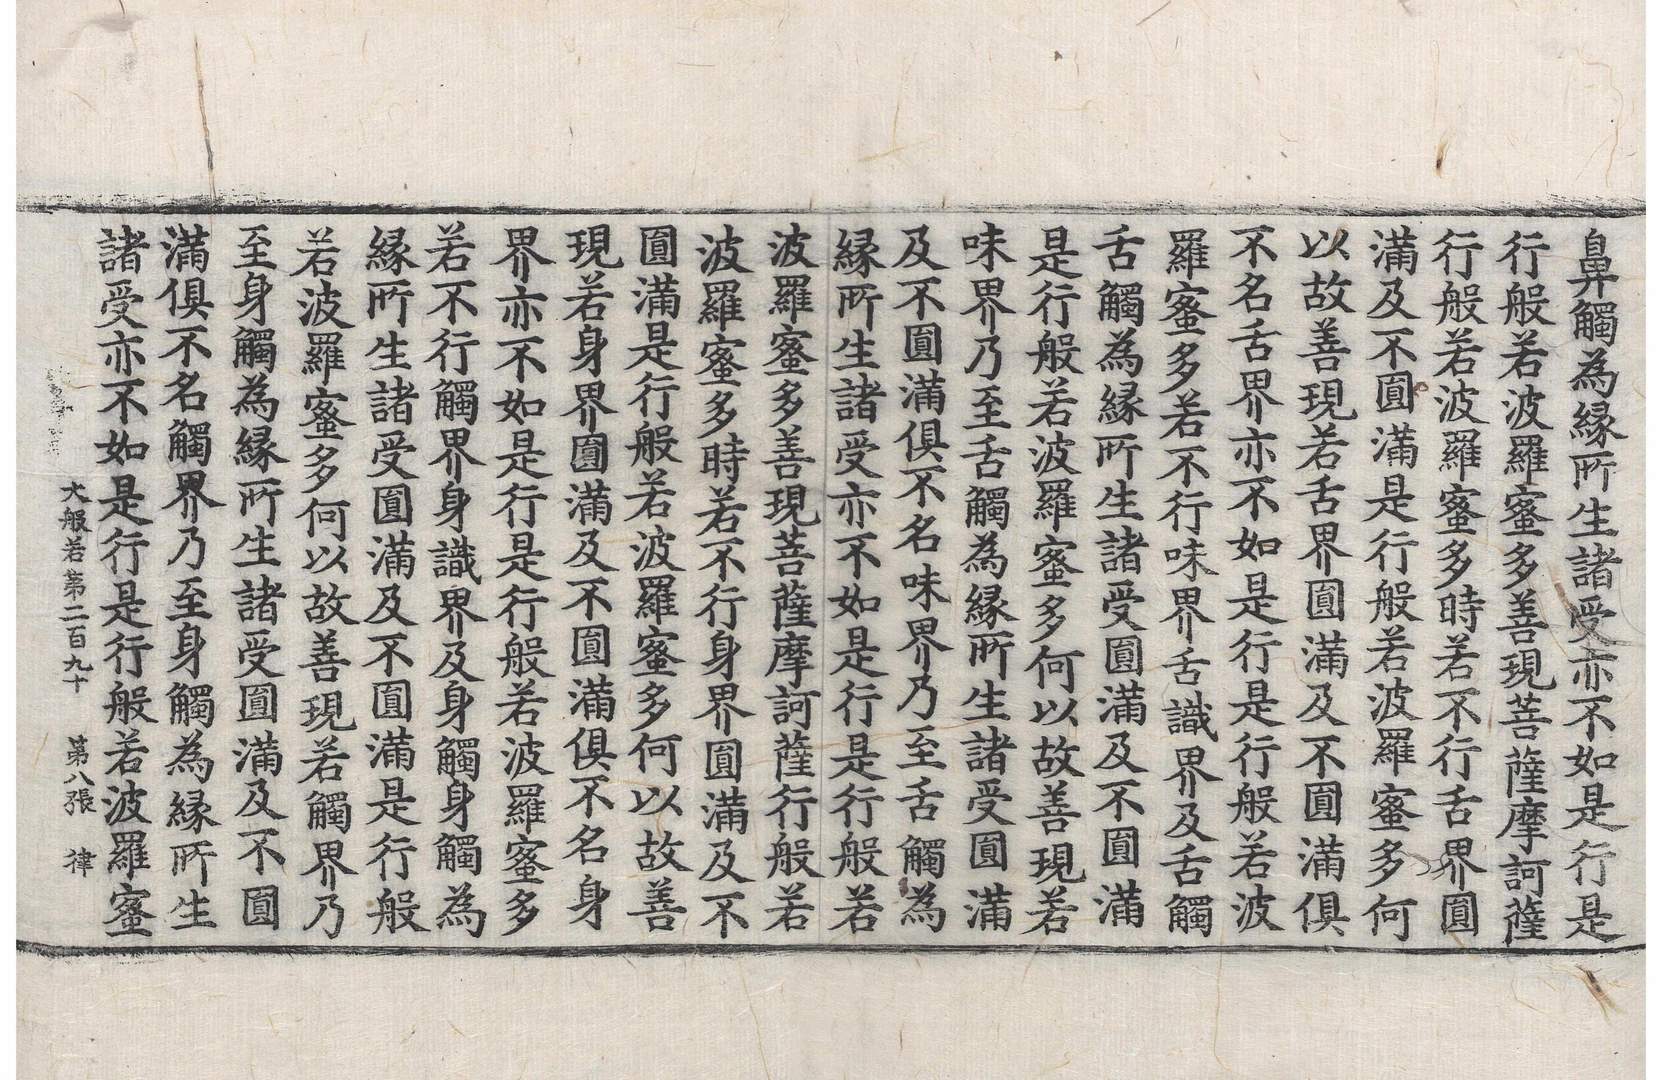 鼻觸為縁所生諸受亦不如是行是
行般若波羅蜜多善現菩薩摩訶薩
行般若波羅蜜多時若不行舌界圓
滿及不圓滿是行般若波羅蜜多何
以故善現若舌界圓滿及不圓滿俱
不名舌界亦不如是行是行般若波
羅蜜多若不行味界舌識界及舌觸
舌觸為縁所生諸受圓滿及不圓滿
是行般若波羅蜜多何以故善現若
味界乃至舌觸為縁所生諸受圓滿
及不圓滿俱不名味界乃至舌觸為
縁所生諸受亦不如是行是行般若
波羅蜜多善現菩薩摩訶薩行般若
波羅蜜多時若不行身界圓滿及不
圓滿是行般若波羅蜜多何以故善
現若身界圓滿及不圓滿俱不名身
界亦不如是行是行般若波羅蜜多
若不行觸界身識界及身觸身觸為
縁所生諸受圓滿及不圓滿是行般
若波羅蜜多何以故善現若觸界乃
至身觸為縁所生諸受圓滿及不圓
滿俱不名觸界乃至身觸為縁所生
諸受亦不如是行是行般若波羅蜜
大般若第二百九十 第八張 律